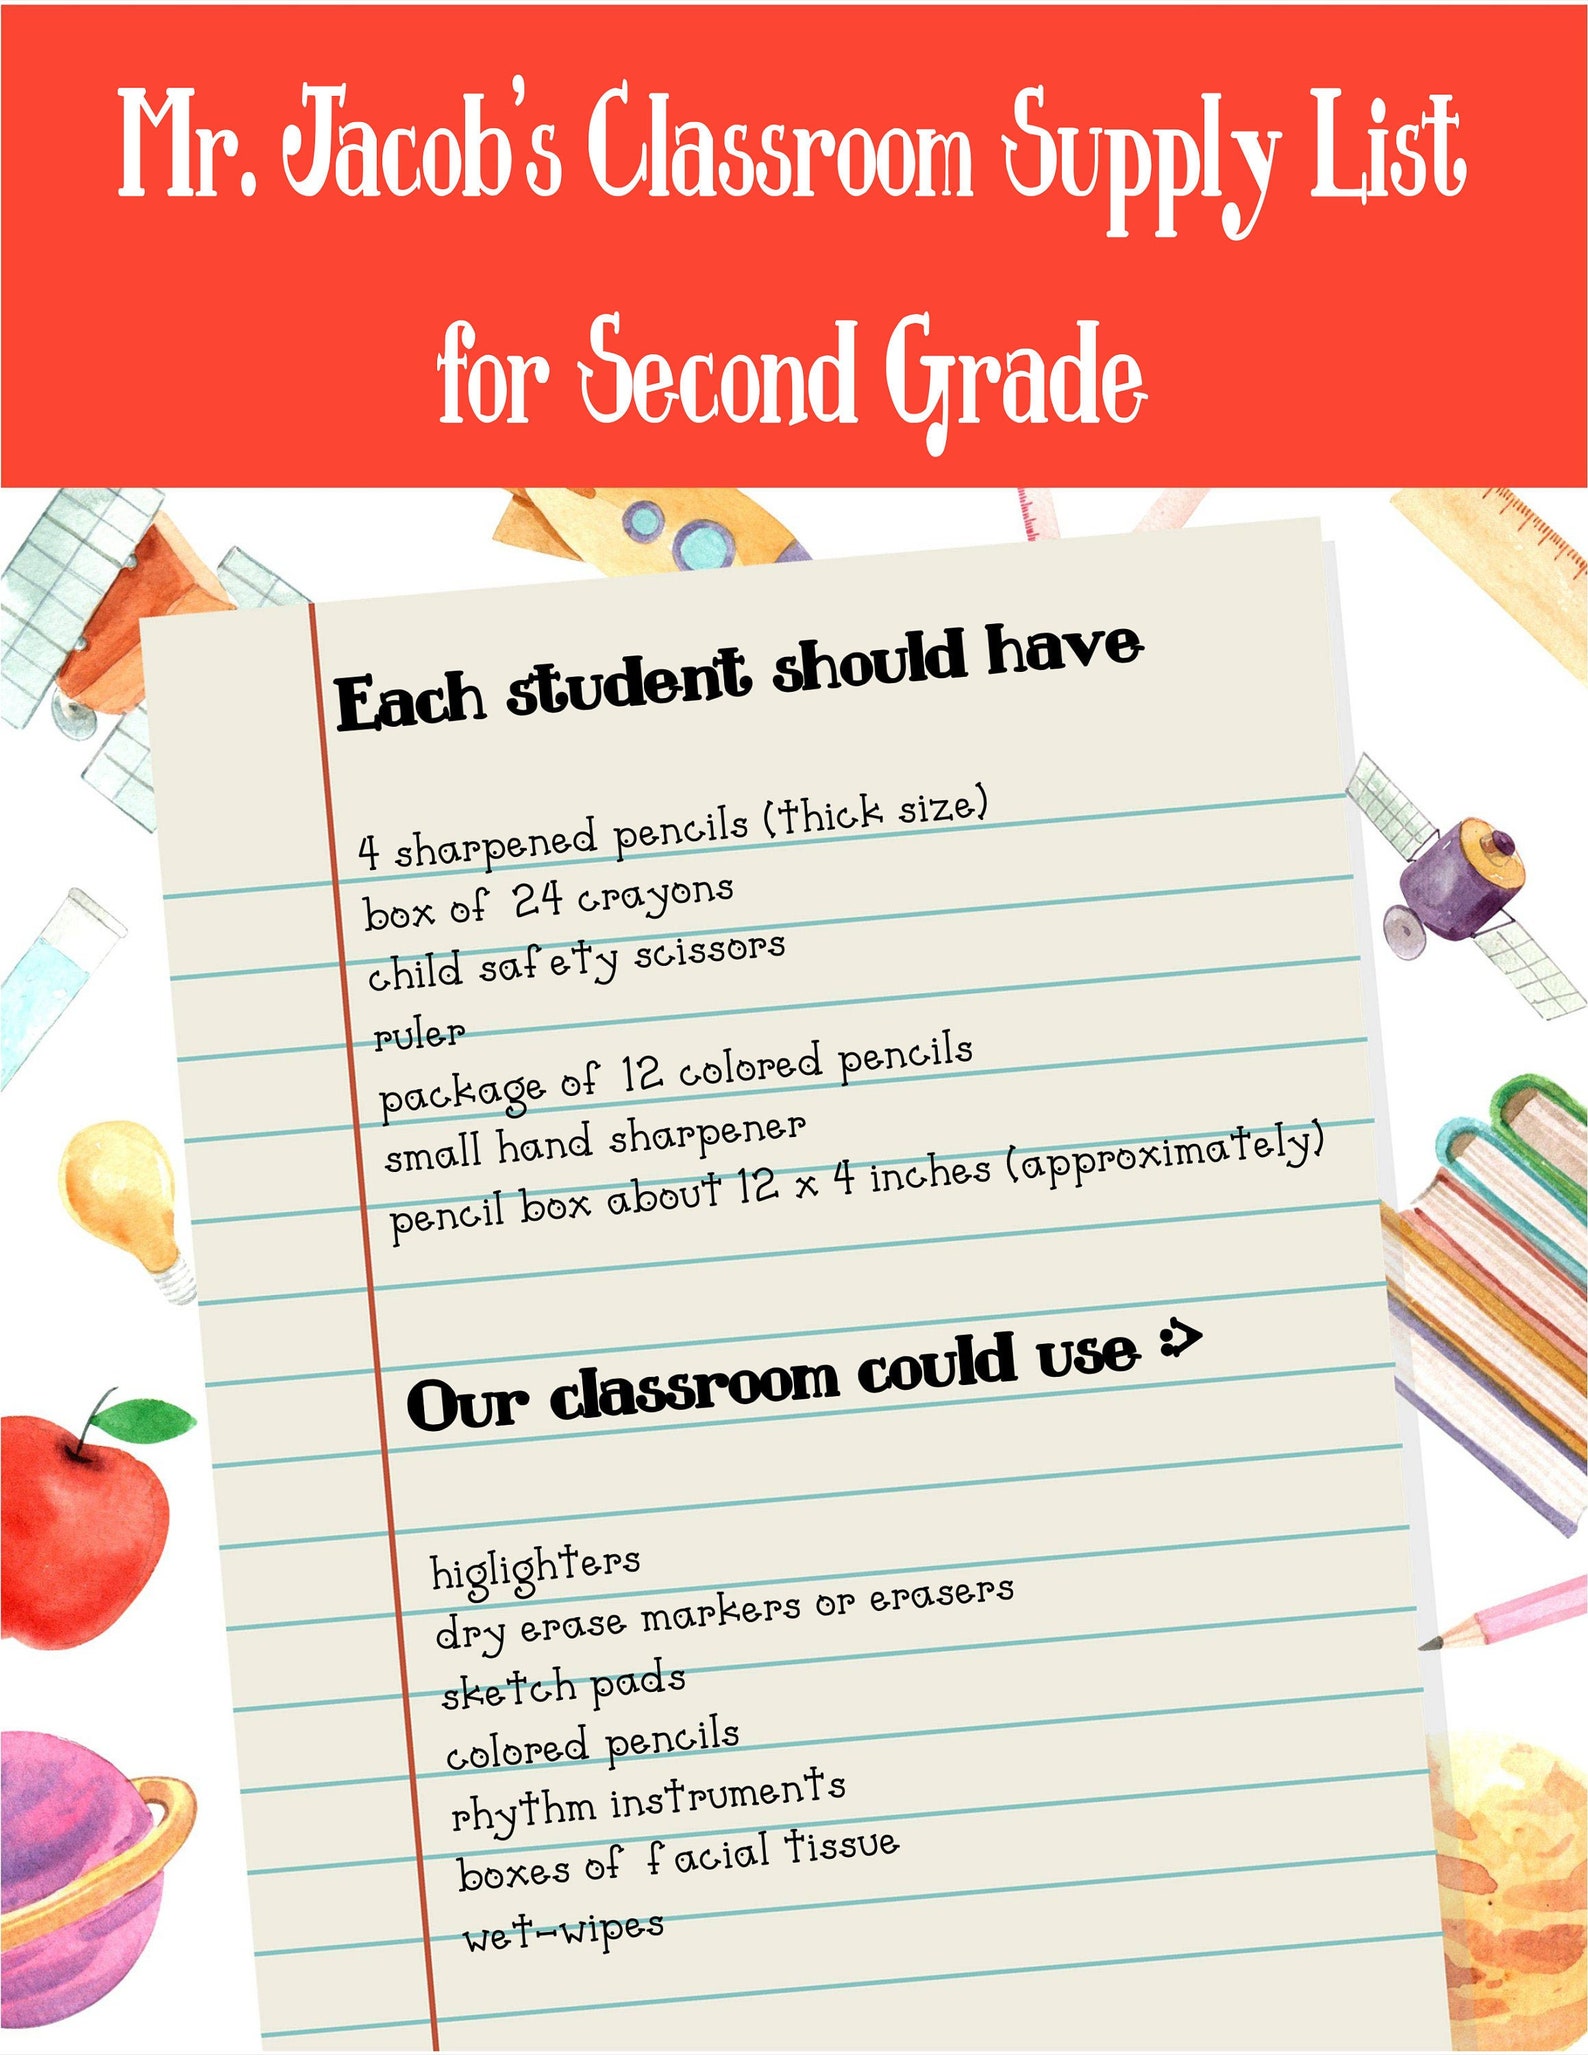 Mr. Jacob's Classroom Supply List
for Second Grade
Each student should have
4 sharpened pencils (thick size)
box of 24 crayons
child safety scissors
ruler
package of 12 colored pencils
small hand sharpener
pencil box about 12 x 4 inches (approximately)
Our classroom could use :>
higlighters
dry erase markers or erasers
sketch pads
colored pencils
rhythm instruments
boxes of facial tissue
wet-wipes